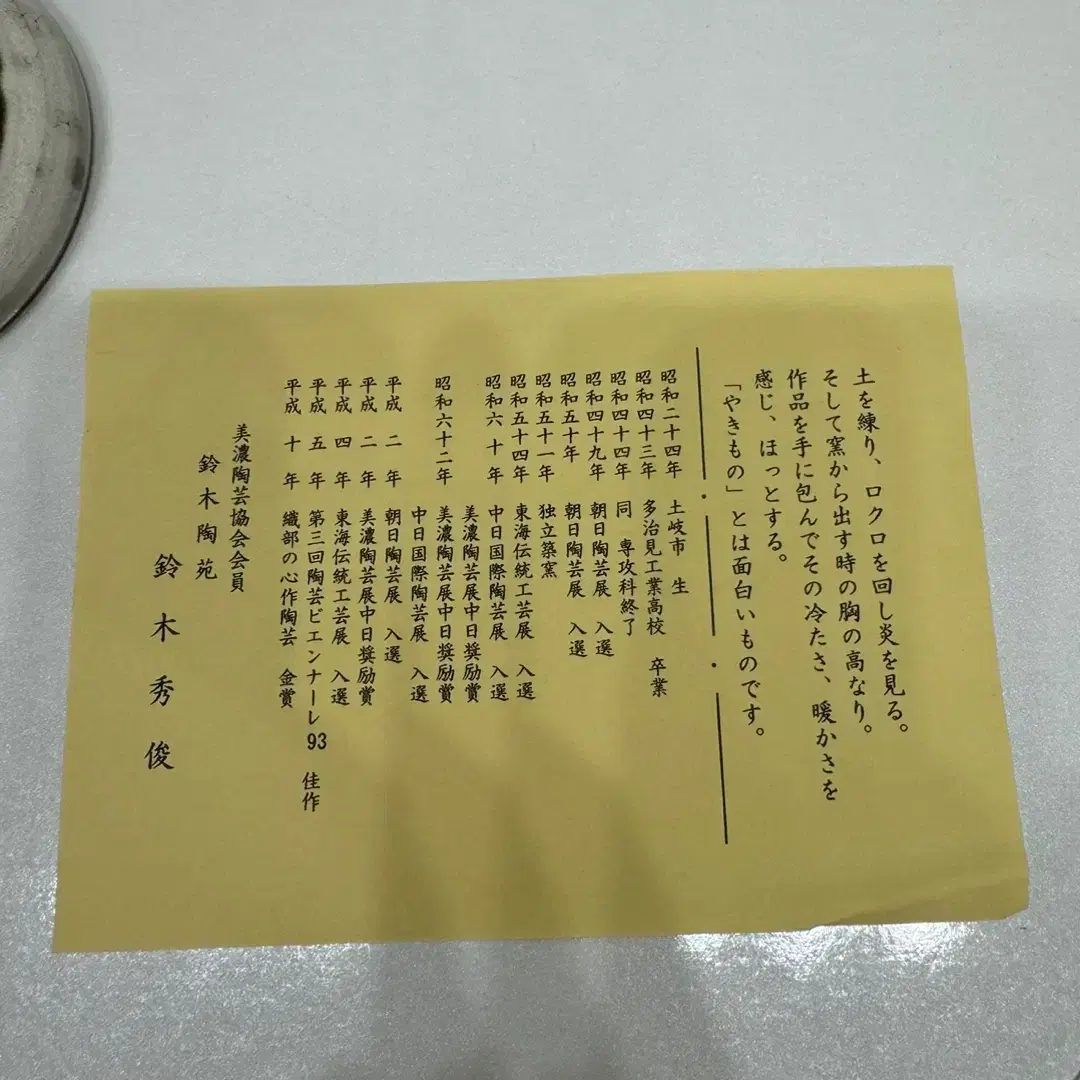 土を練り、ロクロを回し炎を見る。
そして窯から出す時の胸の高なり。
作品を手に包んでその冷たさ、暖かさを
感じ、ほっとする。
「やきもの」とは面白いものです。
昭和二十四年 土岐市 生
昭和四十三年 多治見工業高校 卒業
昭和四十四年 同 専攻科終了
昭和四十九年 朝日陶芸展 入選
昭和五十年 朝日陶芸展 入選
昭和五十一年 独立築窯
昭和五十四年 東海伝統工芸展 入選
昭和六十年 中日国際陶芸展 入選
美濃陶芸展中日奨励賞
昭和六十二年 美濃陶芸展中日奨励賞
中日国際陶芸展 入選
平成二年 朝日陶芸展 入選
平成二年 美濃陶芸展中日奨励賞
平成四年 東海伝統工芸展 入選
平成五年 第三回陶芸ビエンナーレ93 佳作
平成十年 織部の心作陶芸 金賞
美濃陶芸協会会員
鈴木陶苑
鈴木秀俊